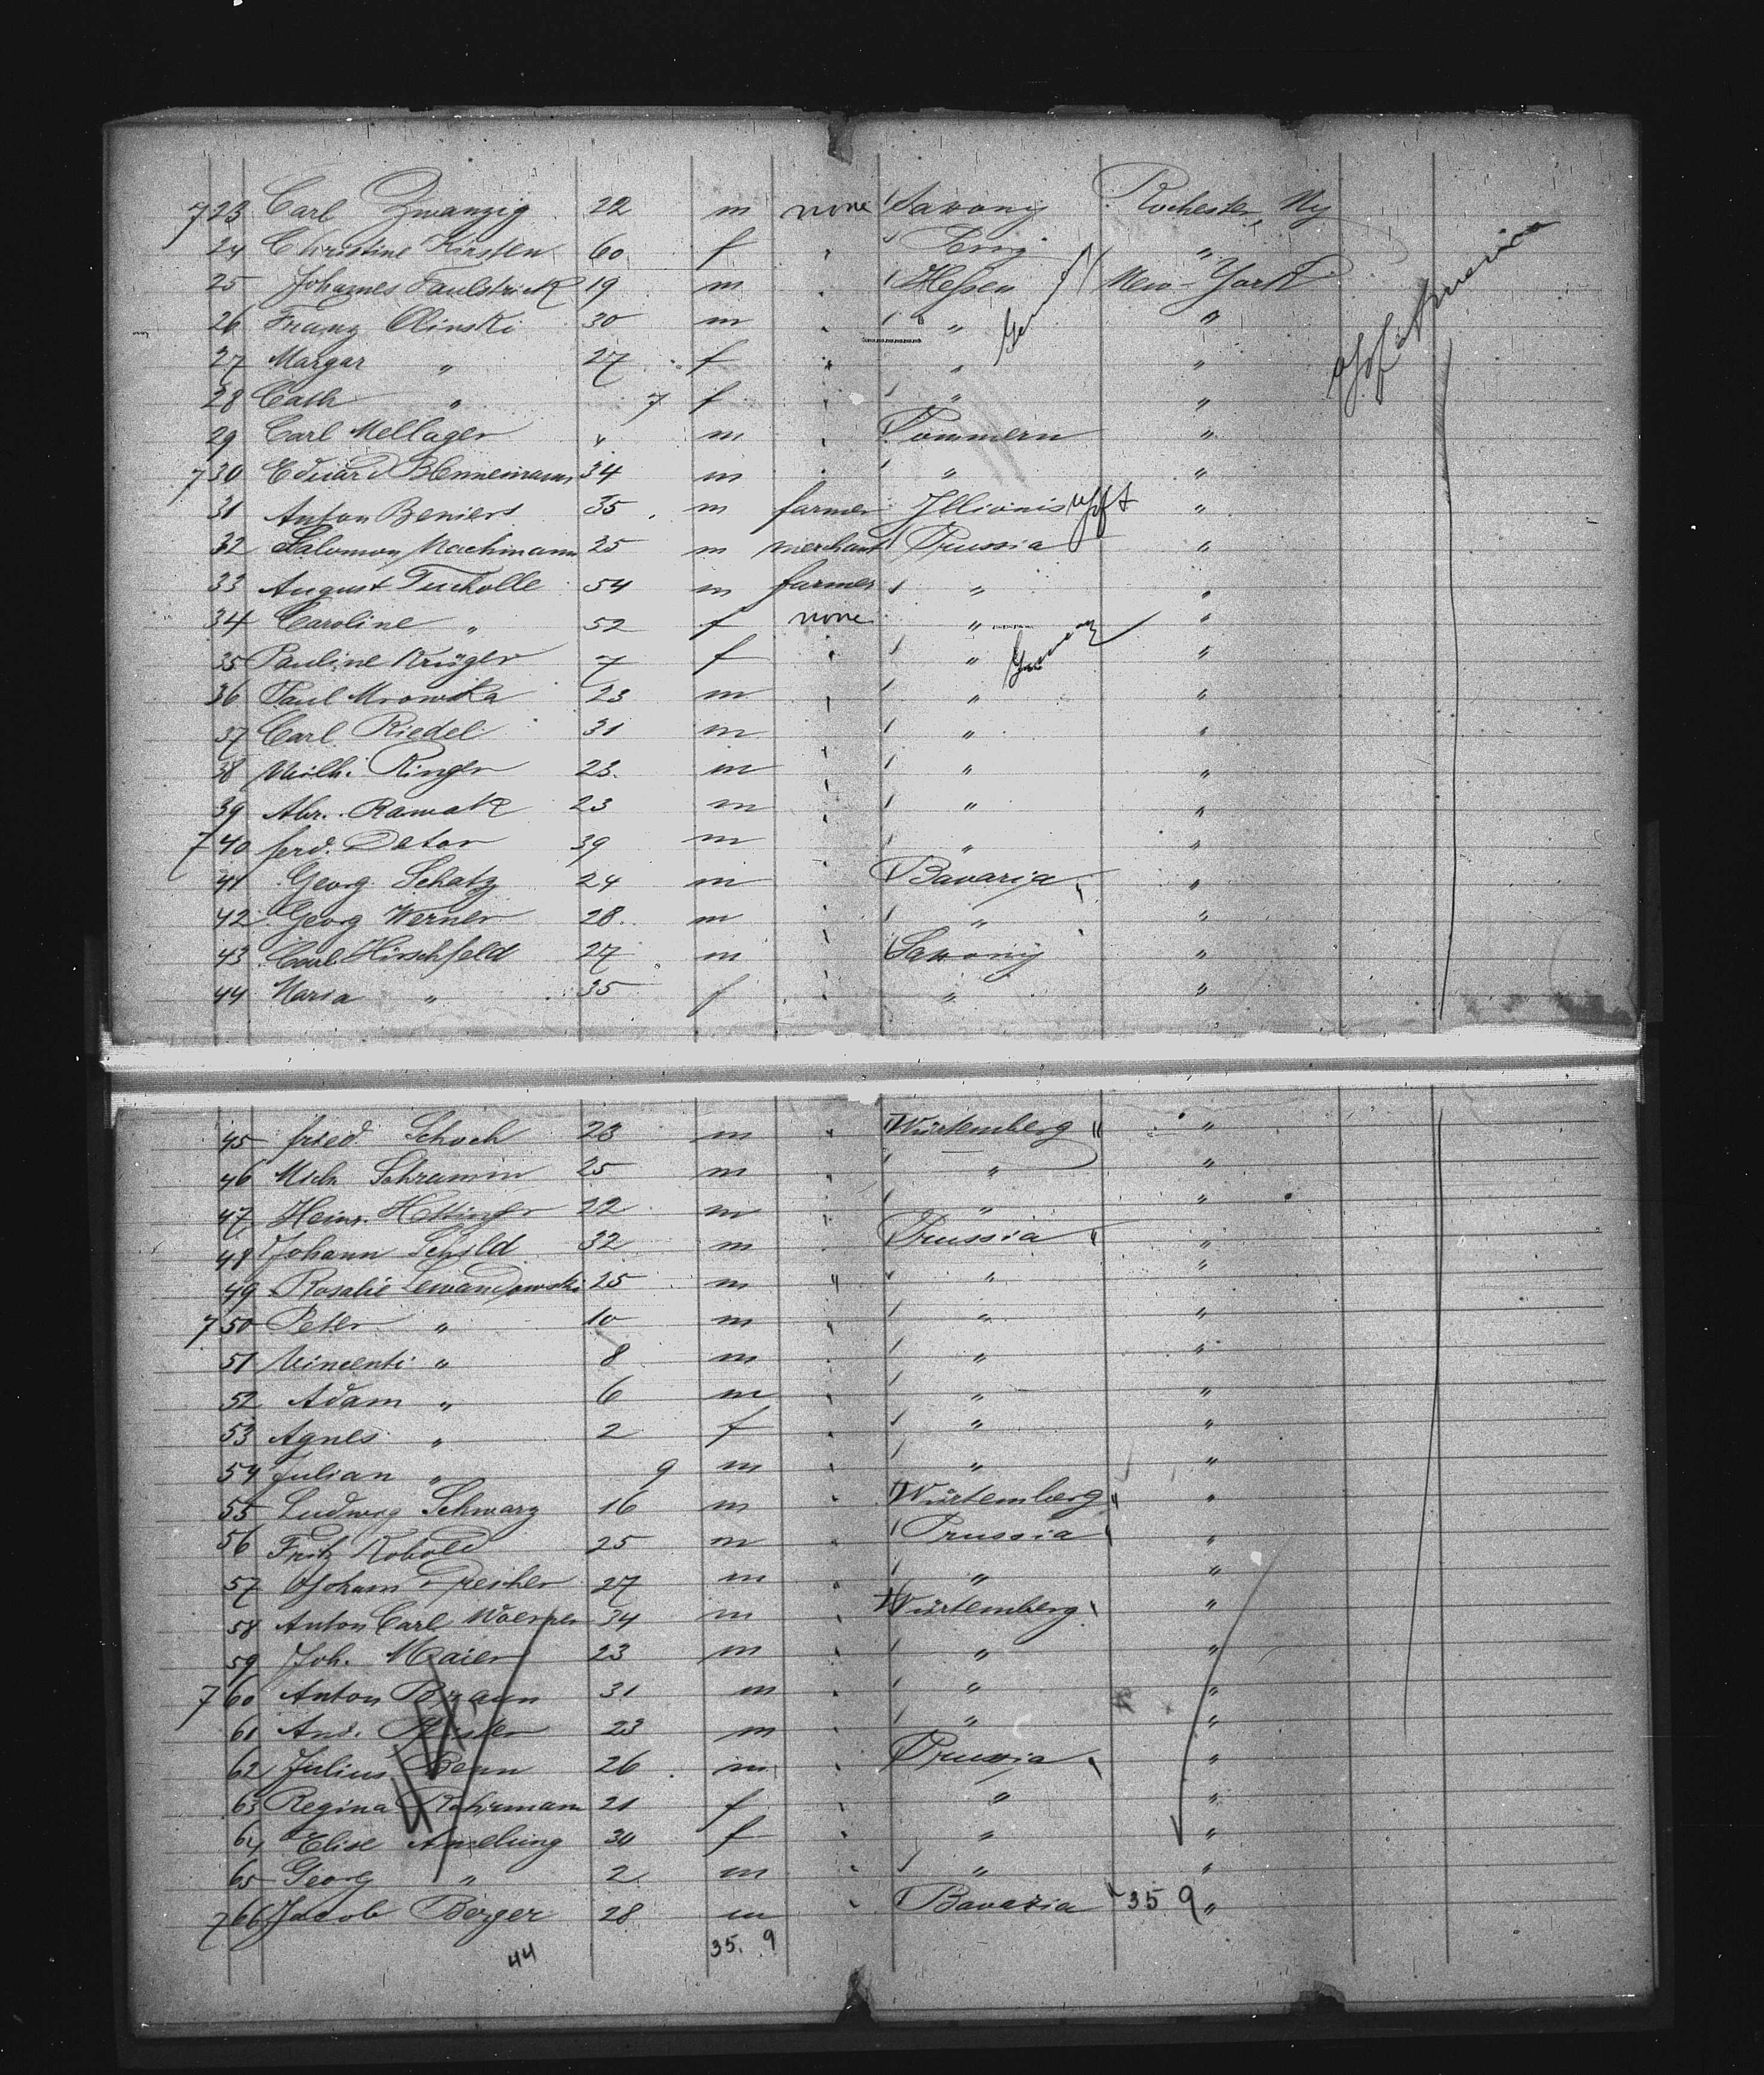 723 Carl Zwanzig 22 m none Saxony Rochester, Ny
24 Christine Kirsten 60 f " "
25 Johannes Faulstrick 19 m " Hessen New-York
26 Franz Olinski 30 m " " "
27 Margar " 27 f " " "
28 Cath " 7 f " " "
29 Carl Mellager " m " Pommern "
730 Eduard Blennemann 34 m " " "
31 Anton Beniers 35 m farmer Illionis "
32 Salomon Nachmann 25 m merchant Prussia "
33 August Tucholle 54 m farmer " "
34 Caroline " 52 f none " "
35 Pauline Krüger 7 f " " "
Germany
36 Paul Mrowka 23 m " " "
37 Carl Riedel 31 m " " "
38 Wilh. Ringer 23 m " " "
39 Abr. Rawak 23 m " " "
740 ferd. Detor 39 m " " "
41 Georg Schatz 24 m " Bavaria "
42 Georg Werner 28 m " " "
43 Carl Hirschfeld 27 m " Saxony "
44 Maria " 35 f " " "
45 fried. Schoch 23 m " Würtemberg "
46 Mich. Schramm 25 m " " "
47 Heinr. Hettinger 22 m " " "
48 Johann Schild 32 m " Prussia "
49 Rosalie Lewandowski 25 m " " "
750 Peter " 10 m " " "
51 Vincenti " 8 m " " "
52 Adam " 6 m " " "
53 Agnes " 2 f " " "
54 Julian " 9 m " " "
55 Ludwig Schwarz 16 m " Würtemberg "
56 Fritz Kobold 25 m " Prussia "
57 Johann 27 m " " "
58 Anton Carl Woerner 34 m " Würtemberg "
59 Joh. Maier 23 m " " "
760 Anton Braun 31 m " " "
61 And. 23 m " " "
62 Julius Benn 26 m " Prussia "
63 Regina 21 f " " "
64 Elise Amelung 30 f " " "
65 Georg " 2 m " " "
766 Jacob Berger 28 m " Bavaria 35 9 "
44 35. 9